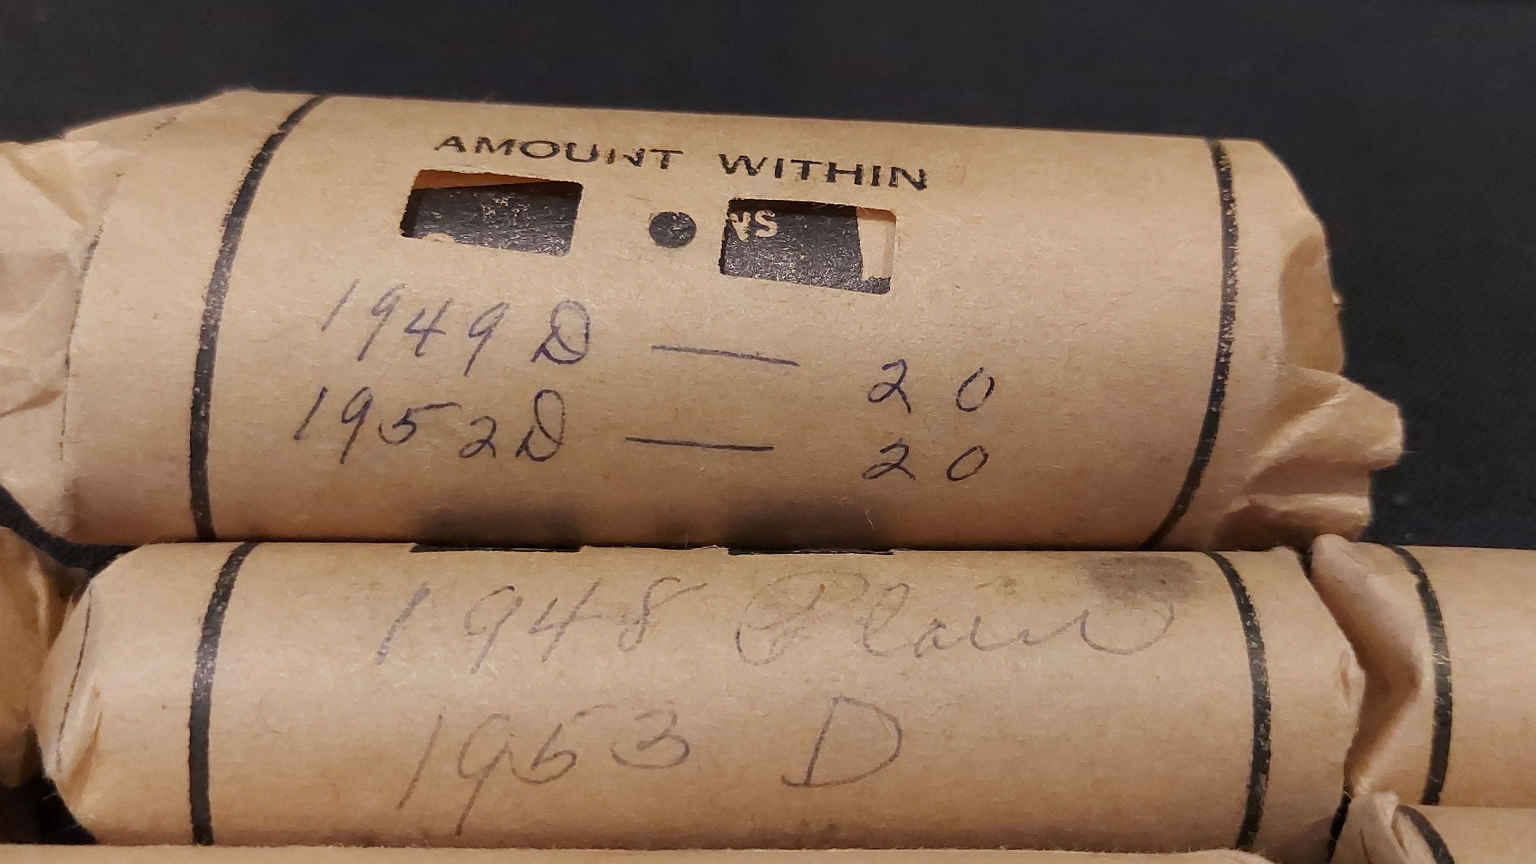 AMOUNT WITHIN
NS
1949 D — 20
1952 D — 20
1948 Plain
1953 D